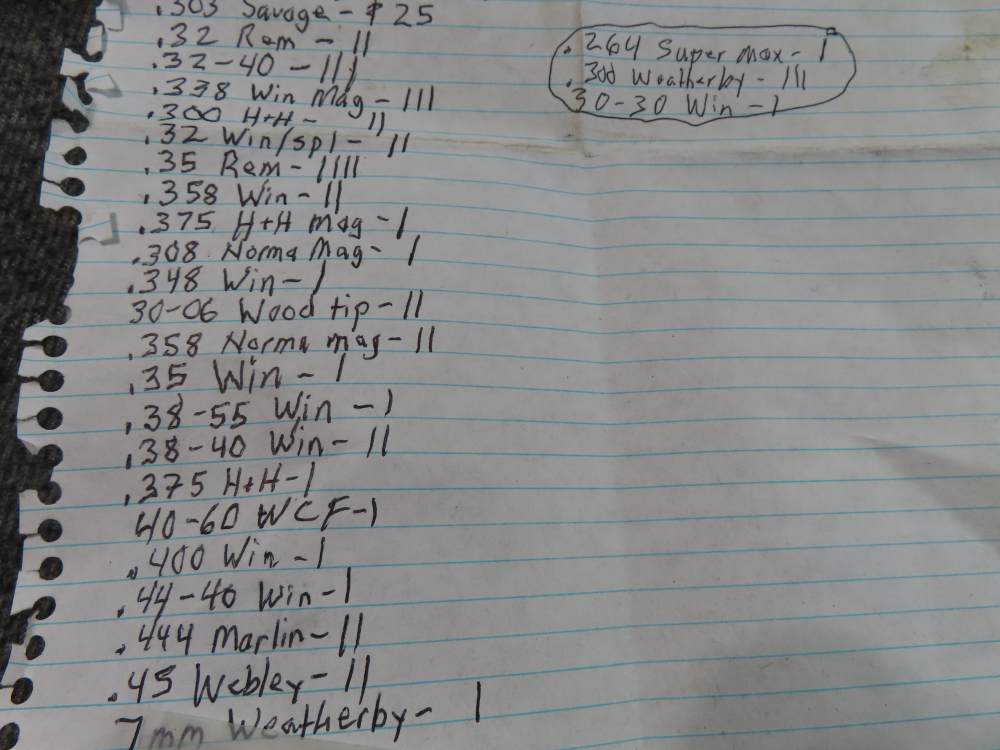 .303 Savage - $25
.32 Rem - II
.32-40 - III
.338 Win Mag - III
.300 H+H - II
.32 Win/spl - II
.35 Rem - IIII
.358 Win - II
.375 H+H Mag - I
.308 Norma Mag - I
.348 Win - I
30-06 Wood tip - II
.358 Norma mag - II
.35 Win - I
.38-55 Win - I
.38-40 Win - II
.375 H+H - I
40-60 WCF - I
.400 Win - I
.44-40 Win - I
.444 Marlin - II
.45 Webley - II
7mm Weatherby - I
.264 Super mox - I
.300 Weatherby - III
30-30 Win - I